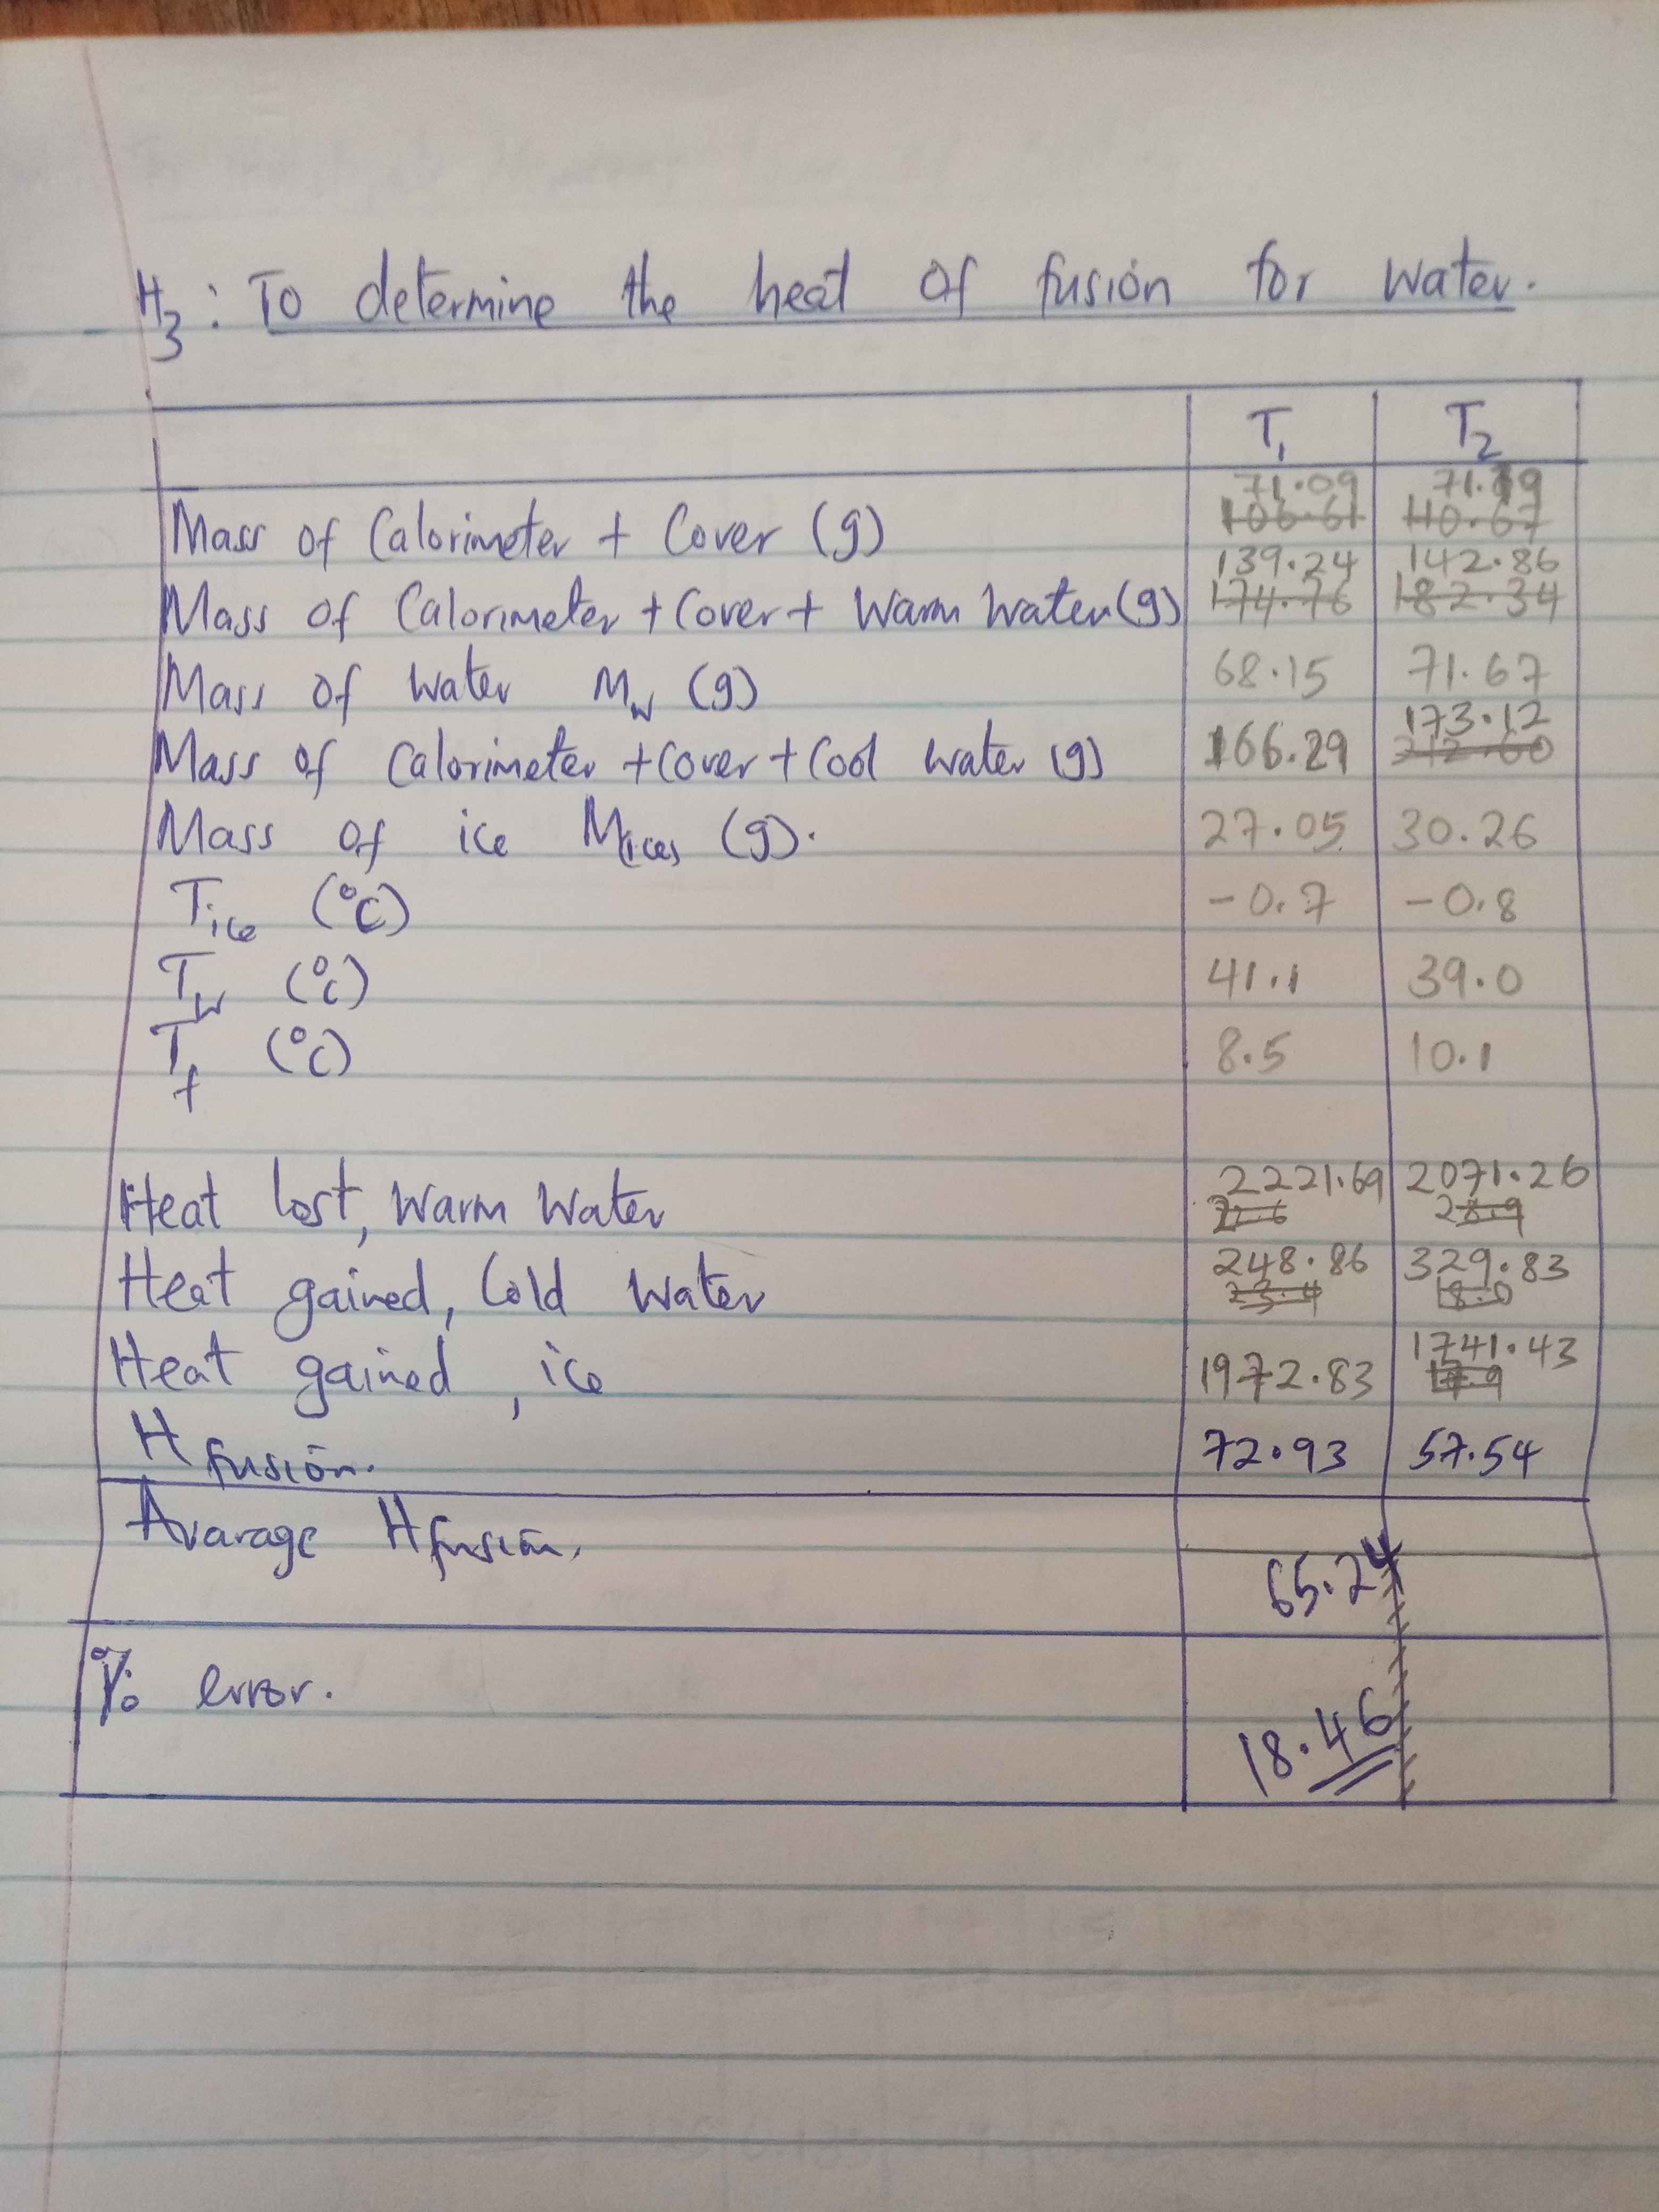 H3: To determine the heat of fusion for water.
T1 T2
71.09 71.19
Mass of Calorimeter + Cover (g) 106.61 110.67
139.24 142.86
Mass of Calorimeter + Cover + Warm Water (g) 174.76 182.34
Mass of Water Mw (g) 68.15 71.67
173.12
Mass of Calorimeter + Cover + Cool Water (g) 166.29 212.60
Mass of ice Mices (g). 27.05 30.26
Tice (°C) -0.7 -0.8
Tw (°C) 41.1 39.0
Tf (°C) 8.5 10.1
2221.69 2071.26
Heat lost, Warm Water 28.9
248.86 329.83
Heat gained, Cold Water 23.4 18.0
1741.43
Heat gained, ice 1972.83
H fusion. 72.93 57.54
Avarage Hfusion. 65.24
% error. 18.46